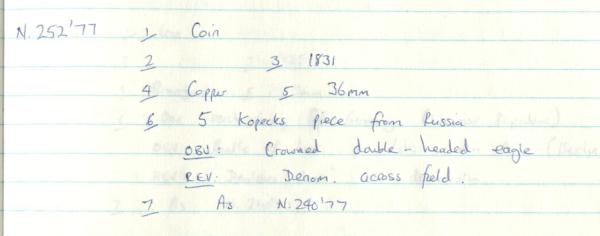 N.252'77 1 Coin
2 3 1831
4 Copper 5 36mm
6 5 Kopecks piece from Russia
OBV: Crowned double-headed eagle
REV: Denom. across field.
7 As N.240'77